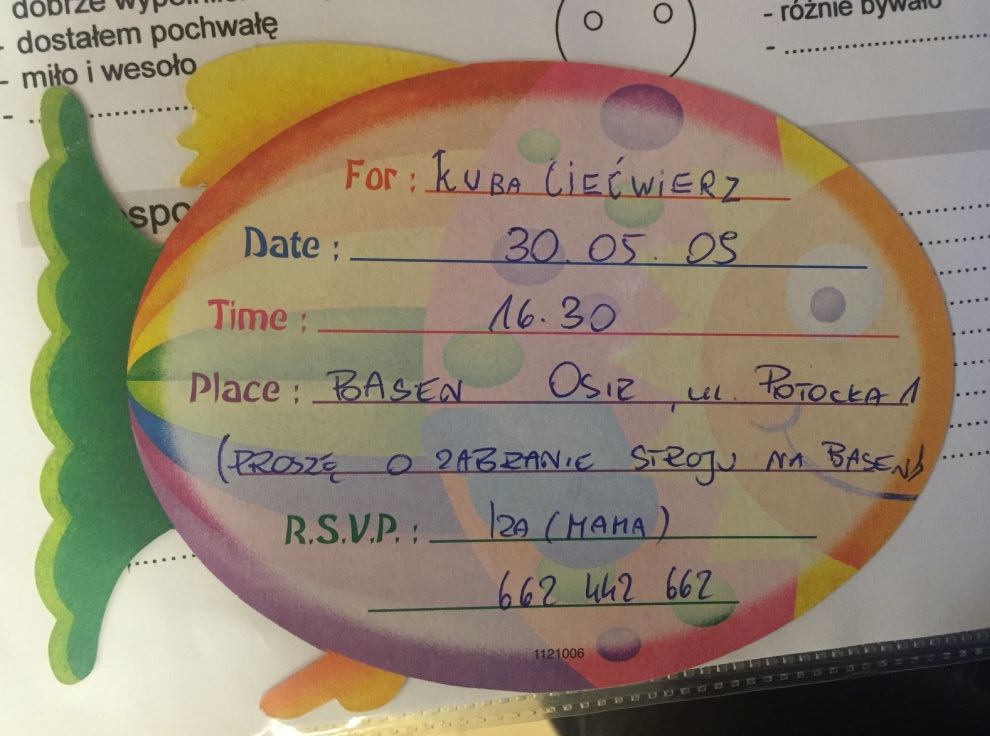 - dostałem pochwałę
- miło i wesoło
- różnie bywało
-
-
spo
For : KUBA ĆIEĆWIERZ
Date : 30. 05. 09
Time : 16.30
Place : BASEN OSIR, ul. POTOCKA 1
(PROSZĘ O ZABRANIE STROJU NA BASEN)
R.S.V.P. : IZA (MAMA)
662 442 662
1121006